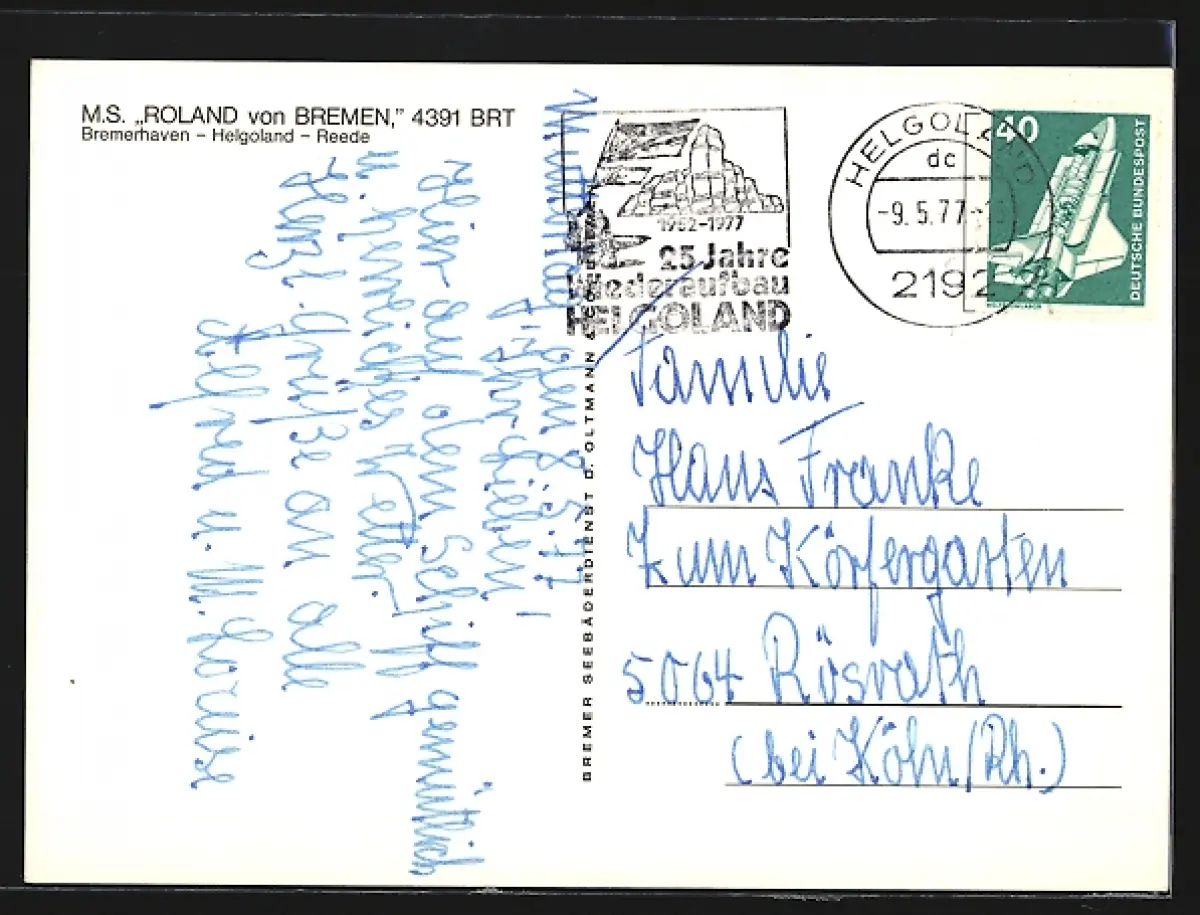 M.S. „ROLAND von BREMEN," 4391 BRT
Bremerhaven – Helgoland – Reede
den 8.5.77
Ihr Lieben!
Hier auf dem Schiff gemütlich
u. herrliches Wetter.
Herzl. Grüße an alle
u. M. Louise
BREMER SEEBÄDERDIENST D. OLTMANN & CO BREMEN
1952-1977
25 Jahre
Wiederaufbau
HELGOLAND
HELGOLAND
dc
-9.5.77-
2192
40
DEUTSCHE BUNDESPOST
Familie
Hans Franke
Zum
5064 Rösrath
(bei Köln/Rh.)